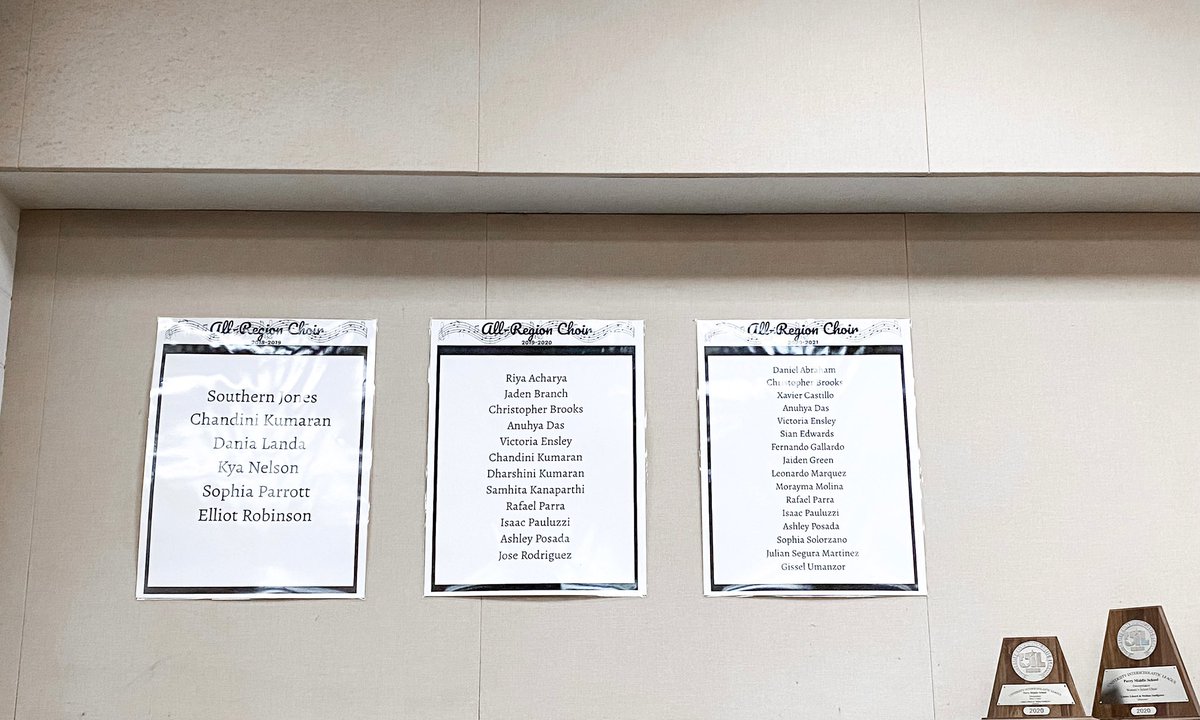 All-Region Choir
2018-2019
Southern Jones
Chandini Kumaran
Dania Landa
Kya Nelson
Sophia Parrott
Elliot Robinson
All-Region Choir
2019-2020
Riya Acharya
Jaden Branch
Christopher Brooks
Anuhya Das
Victoria Ensley
Chandini Kumaran
Dharshini Kumaran
Samhita Kanaparthi
Rafael Parra
Isaac Pauluzzi
Ashley Posada
Jose Rodriguez
All-Region Choir
2020-2021
Daniel Abraham
Christopher Brooks
Xavier Castillo
Anuhya Das
Victoria Ensley
Sian Edwards
Fernando Gallardo
Jaiden Green
Leonardo Marquez
Morayma Molina
Rafael Parra
Isaac Pauluzzi
Ashley Posada
Sophia Solorzano
Julian Segura Martinez
Gissel Umanzor
UIL
UNIVERSITY INTERSCHOLASTIC LEAGUE
Perry Middle School
2020
UIL
UNIVERSITY INTERSCHOLASTIC LEAGUE
Perry Middle School
2020